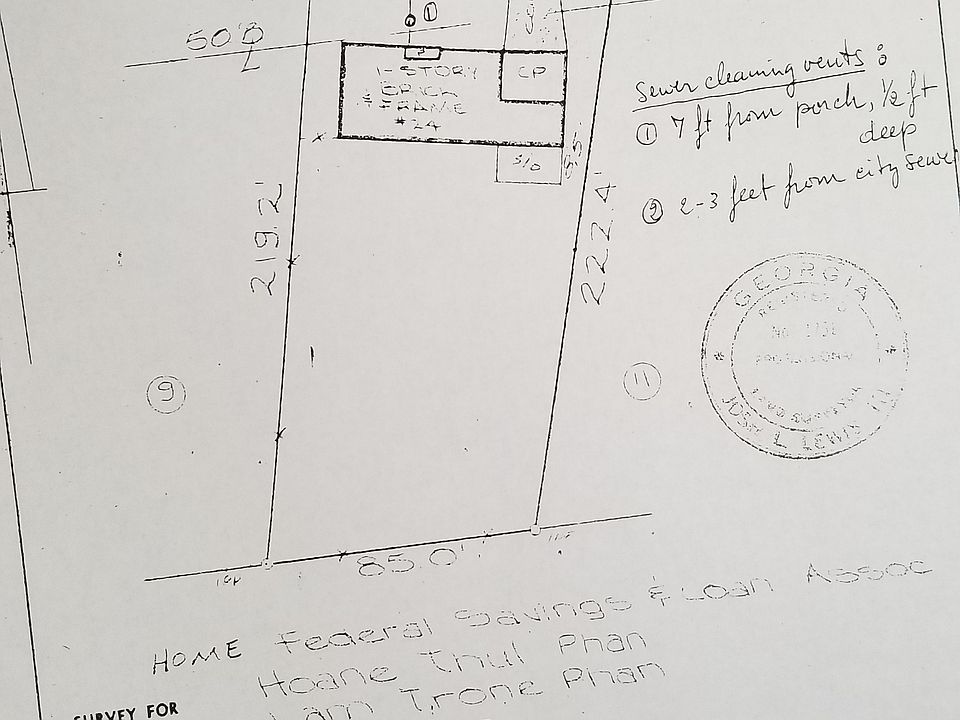 ①
50' B
L
1-STORY
BRICK
& FRAME
#24
CP
S/O
219.2'
222.4'
Sewer cleaning vents :
① 7 ft from porch, 1/2 ft
deep
② 2-3 feet from city sewer
GEORGIA
LAND SURVEYOR
L. LEWIS III
9
11
85.0'
HOME Federal Savings & Loan Assoc
Hoane Thui Phan
Lam Trone Phan
SURVEY FOR